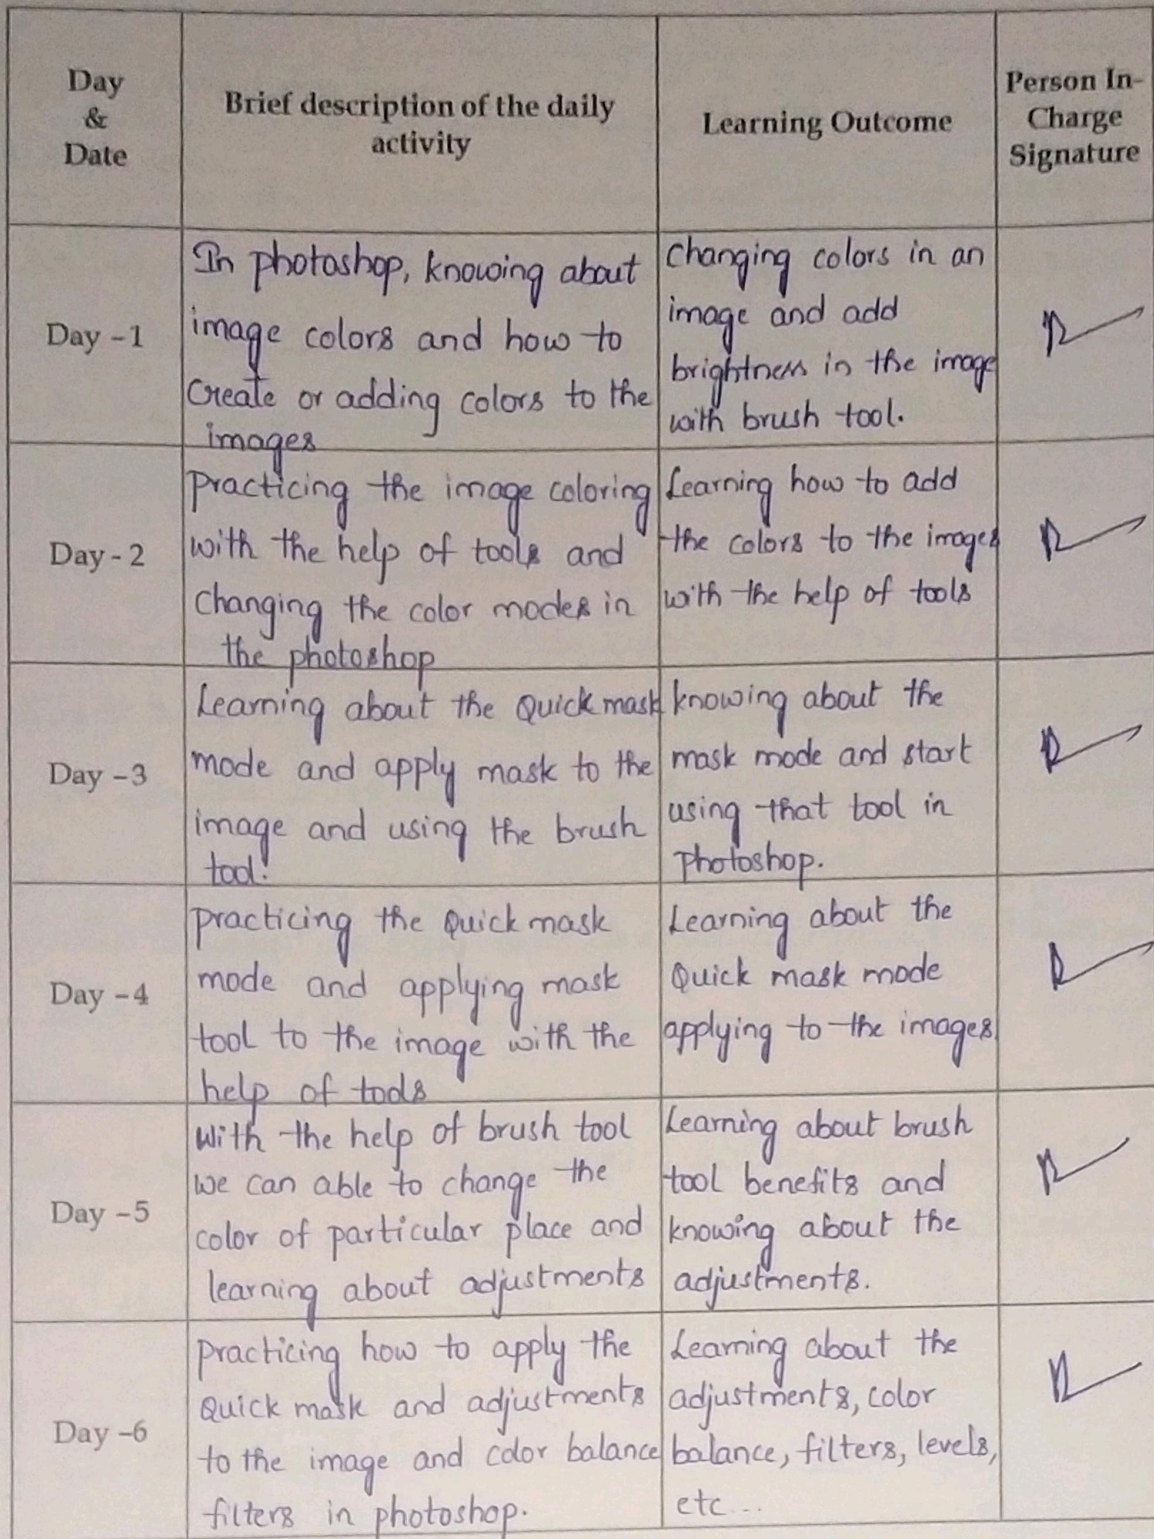 Day
&
Date
Brief description of the daily
activity
Learning Outcome
Person In-
Charge
Signature
Day -1
In photoshop, knowing about
image colors and how to
Create or adding colors to the
images
Changing colors in an
image and add
brightness in the image
with brush tool.
Day - 2
Practicing the image coloring
with the help of tools and
Changing the color modes in
the photoshop
Learning how to add
the colors to the images
with the help of tools
Day -3
Learning about the Quick mask
mode and apply mask to the
image and using the brush
tool.
knowing about the
mask mode and start
using that tool in
Photoshop.
Day -4
Practicing the Quick mask
mode and applying mask
tool to the image with the
help of tools
Learning about the
Quick mask mode
applying to the images.
Day -5
With the help of brush tool
we can able to change the
color of particular place and
learning about adjustments
Learning about brush
tool benefits and
knowing about the
adjustments.
Day -6
Practicing how to apply the
Quick mask and adjustments
to the image and color balance
filters in photoshop.
Learning about the
adjustments, color
balance, filters, levels,
etc...